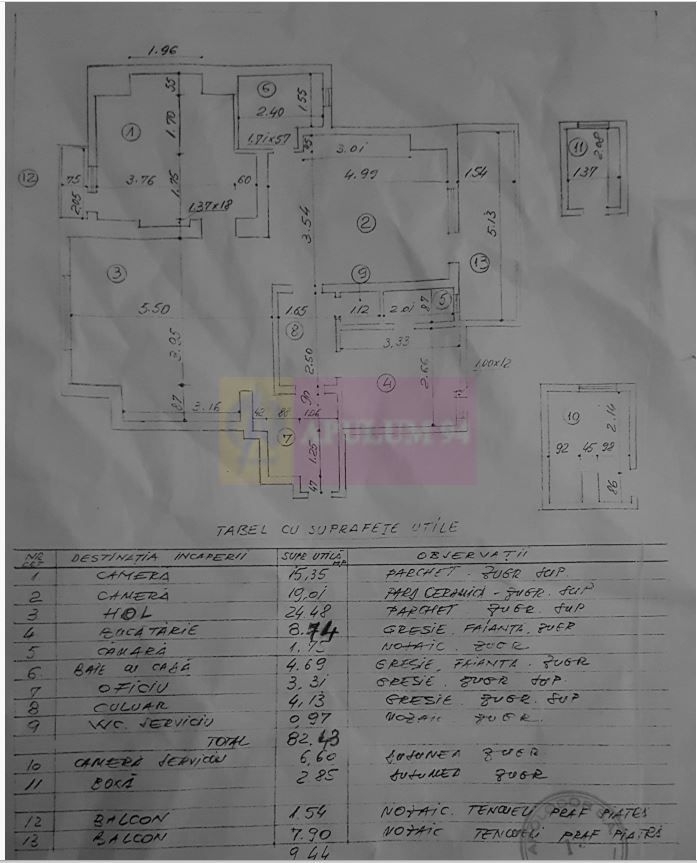 1.96
6
55
2.40
1.55
1
1.70
1.71x57
3.01
4.99
1.54
11
2.08
1.37
12
75
3.76
1.75
60
2.05
1.37x18
3.54
2
5.13
13
3
9
5.50
1.65
1.12
2.01
87
5
8
3.95
2.50
3.33
2.66
1.00x12
4
87
3.16
99
42
86
1.06
7
1.25
47
10
2.14
92
45
92
86
APULUM 94
TABEL CU SUPRAFEȚE UTILE
NR CRT DESTINAȚIA INCAPERII SUPR UTILĂ MP OBSERVAȚII
1 CAMERA 15,35 PARCHET - ZUGR SUP
2 CAMERA 19,01 PARD CERAMICA - ZUGR. SUP
3 HOL 24.48 PARCHET ZUGR. SUP
4 BUCATARIE 8.74 GRESIE. FAIANTA. ZUGR
5 CAMARĂ MOZAIC ZUGR
6 BAIE CU CADĂ 4.69 GRESIE, FAIANTA. ZUGR
7 OFICIU 3,31 GRESIE. ZUGR SUP.
8 CULUAR 4,13 GRESIE. ZUGR. SUP
9 WC. SERVICIU 0,97 MOZAIC ZUGR.
TOTAL 82.43
10 CAMERA SERVICIU 6,60 DUȘUMEA ZUGR
11 BOXĂ 2.85 DUȘUMEA ZUGR
12 BALCON 1.54 MOZAIC. TENCUELI PRAF PIATRĂ
13 BALCON 7.90 MOZAIC TENCUELI PRAF PIATRĂ
9.44